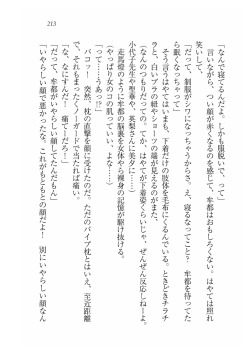 213
「なんで寝てるんだよ。しかも服脱いで、って」
言いながら、つい顔が赤くなるのを感じて、牟都はおもしろくない。はやては照れ
笑いして、
「だって、制服がシワになっちゃうからさ。え、寝るなってこと？　牟都を待ってた
ら眠くなっちゃって」
そう言うはやてはいまも、下着だけの肢体を毛布にくるんでいる。ときどきチラチ
ラと、白いブラの紐やショーツの端が見えるのがまた、
（なんのつもりだっての。てか、はやてが下着姿くらいじゃ、ぜんぜん反応しねーよ。
小代子先生や聖華や、英梨さんに美夕に……）
走馬燈のように牟都の脳裏を女体やら裸身の記憶が駆け抜ける。
（やっぱり女のコの肌っていい、よな……）
「って……うあっ!?」
バコッ！　突然、枕の直撃を顔に受けたのだ。ただのパイプ枕とはいえ、至近距離
で、それもまったくノーガードで当たれば痛い。
「な、なにすんだ！　痛てーだろ！」
「だって、牟都がいやらしい顔してたんだもん」
「いやらしい顔で悪かったな。これがもともとの顔だよ！　別にいやらしい顔なん